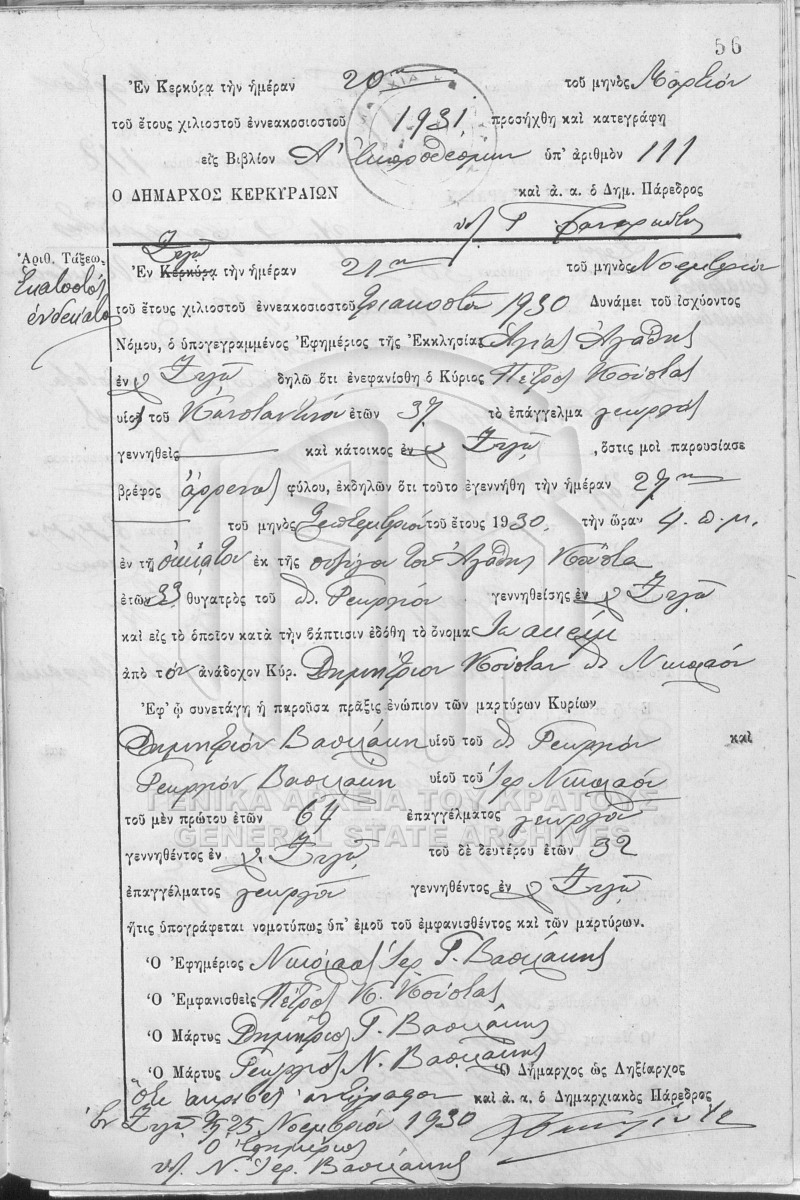 56
Ἐν Κερκύρᾳ τὴν ἡμέραν 20ην τοῦ μηνὸς Μαρτίου
τοῦ ἔτους χιλιοστοῦ ἐννεακοσιοστοῦ 1931 προσήχθη καὶ κατεγράφη
εἰς Βιβλίον Α' Ἐκπροθέσμων ὑπ' ἀριθμὸν 111
Ο ΔΗΜΑΡΧΟΣ ΚΕΡΚΥΡΑΙΩΝ καὶ ἀ. α. ὁ Δημ. Πάρεδρος
Ἀριθ. Τάξεως
Ἑκατοστὸς
ἑνδέκατος
Ζυγῷ
Ἐν Κερκύρᾳ τὴν ἡμέραν 21ην τοῦ μηνὸς Νοεμβρίου
τοῦ ἔτους χιλιοστοῦ ἐννεακοσιοστοῦ τριακοστοῦ 1930 Δυνάμει τοῦ ἰσχύοντος
Νόμου, ὁ ὑπογεγραμμένος Ἐφημέριος τῆς Ἐκκλησίας Ἁγίας Ἀγάθης
ἐν Ζυγῷ δηλῶ ὅτι ἐνεφανίσθη ὁ Κύριος Πέτρος Κούστας
υἱὸς τοῦ Κωνσταντίνου ἐτῶν 37 τὸ ἐπάγγελμα γεωργὸς
γεννηθεὶς καὶ κάτοικος ἐν Ζυγῷ, ὅστις μοὶ παρουσίασε
βρέφος ἄρρενος φύλου, ἐκδηλῶν ὅτι τοῦτο ἐγεννήθη τὴν ἡμέραν 27ην
τοῦ μηνὸς Σεπτεμβρίου τοῦ ἔτους 1930. τὴν ὥραν 4. π. μ.
ἐν τῇ οἰκίᾳ του ἐκ τῆς συζύγου του Ἀγάθης Κούστα
ἐτῶν 33 θυγατρὸς τοῦ Γεωργίου γεννηθείσης ἐν Ζυγῷ
καὶ εἰς τὸ ὁποῖον κατὰ τὴν βάπτισιν ἐδόθη τὸ ὄνομα Ἰωακεὶμ
ἀπὸ τὸν ἀνάδοχον Κύρ. Δημήτριον Κούσταν Νικολάου
Ἐφ' ᾧ συνετάγη ἡ παροῦσα πρᾶξις ἐνώπιον τῶν μαρτύρων Κυρίων
Δημητρίου Βασιλάκη υἱοῦ τοῦ Γεωργίου καὶ
Γεωργίου Βασιλάκη υἱοῦ τοῦ Ἱερ Νικολάου
ΓΕΝΙΚΑ ΑΡΧΕΙΑ ΤΟΥ ΚΡΑΤΟΥΣ
τοῦ μὲν πρώτου ἐτῶν 64 ἐπαγγέλματος γεωργοῦ
GENERAL STATE ARCHIVES
γεννηθέντος ἐν Ζυγῷ τοῦ δὲ δευτέρου ἐτῶν 32
ἐπαγγέλματος γεωργοῦ γεννηθέντος ἐν Ζυγῷ
ἥτις ὑπογράφεται νομοτύπως ὑπ' ἐμοῦ τοῦ ἐμφανισθέντος καὶ τῶν μαρτύρων.
Ὁ Ἐφημέριος Νικόλαος Ἱερ Γ. Βασιλάκης
Ὁ Ἐμφανισθεὶς Πέτρος Κ. Κούστας
Ὁ Μάρτυς Δημήτριος Γ. Βασιλάκης
Ὁ Μάρτυς Γεώργιος Ν. Βασιλάκης Ὁ Δήμαρχος ὡς Ληξίαρχος
Ὅτι ἀκριβὲς ἀντίγραφον καὶ ἀ. α. ὁ Δημαρχιακὸς Πάρεδρος
ἐν Ζυγῷ τῇ 25 Νοεμβρίου 1930
Ὁ Ἐφημέριος
Ν. Ἱερ. Βασιλάκης